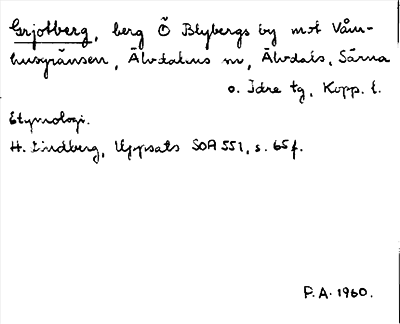 Grjotberg, berg Ö Blybergs by mot Våm-
husgränsen, Älvdalens sn, Älvdals, Särna
o. Idre tg, Kopp. l.
Etymologi.
H. Lindberg, Uppsats SOA 551, s. 65 f.
P.A. 1960.